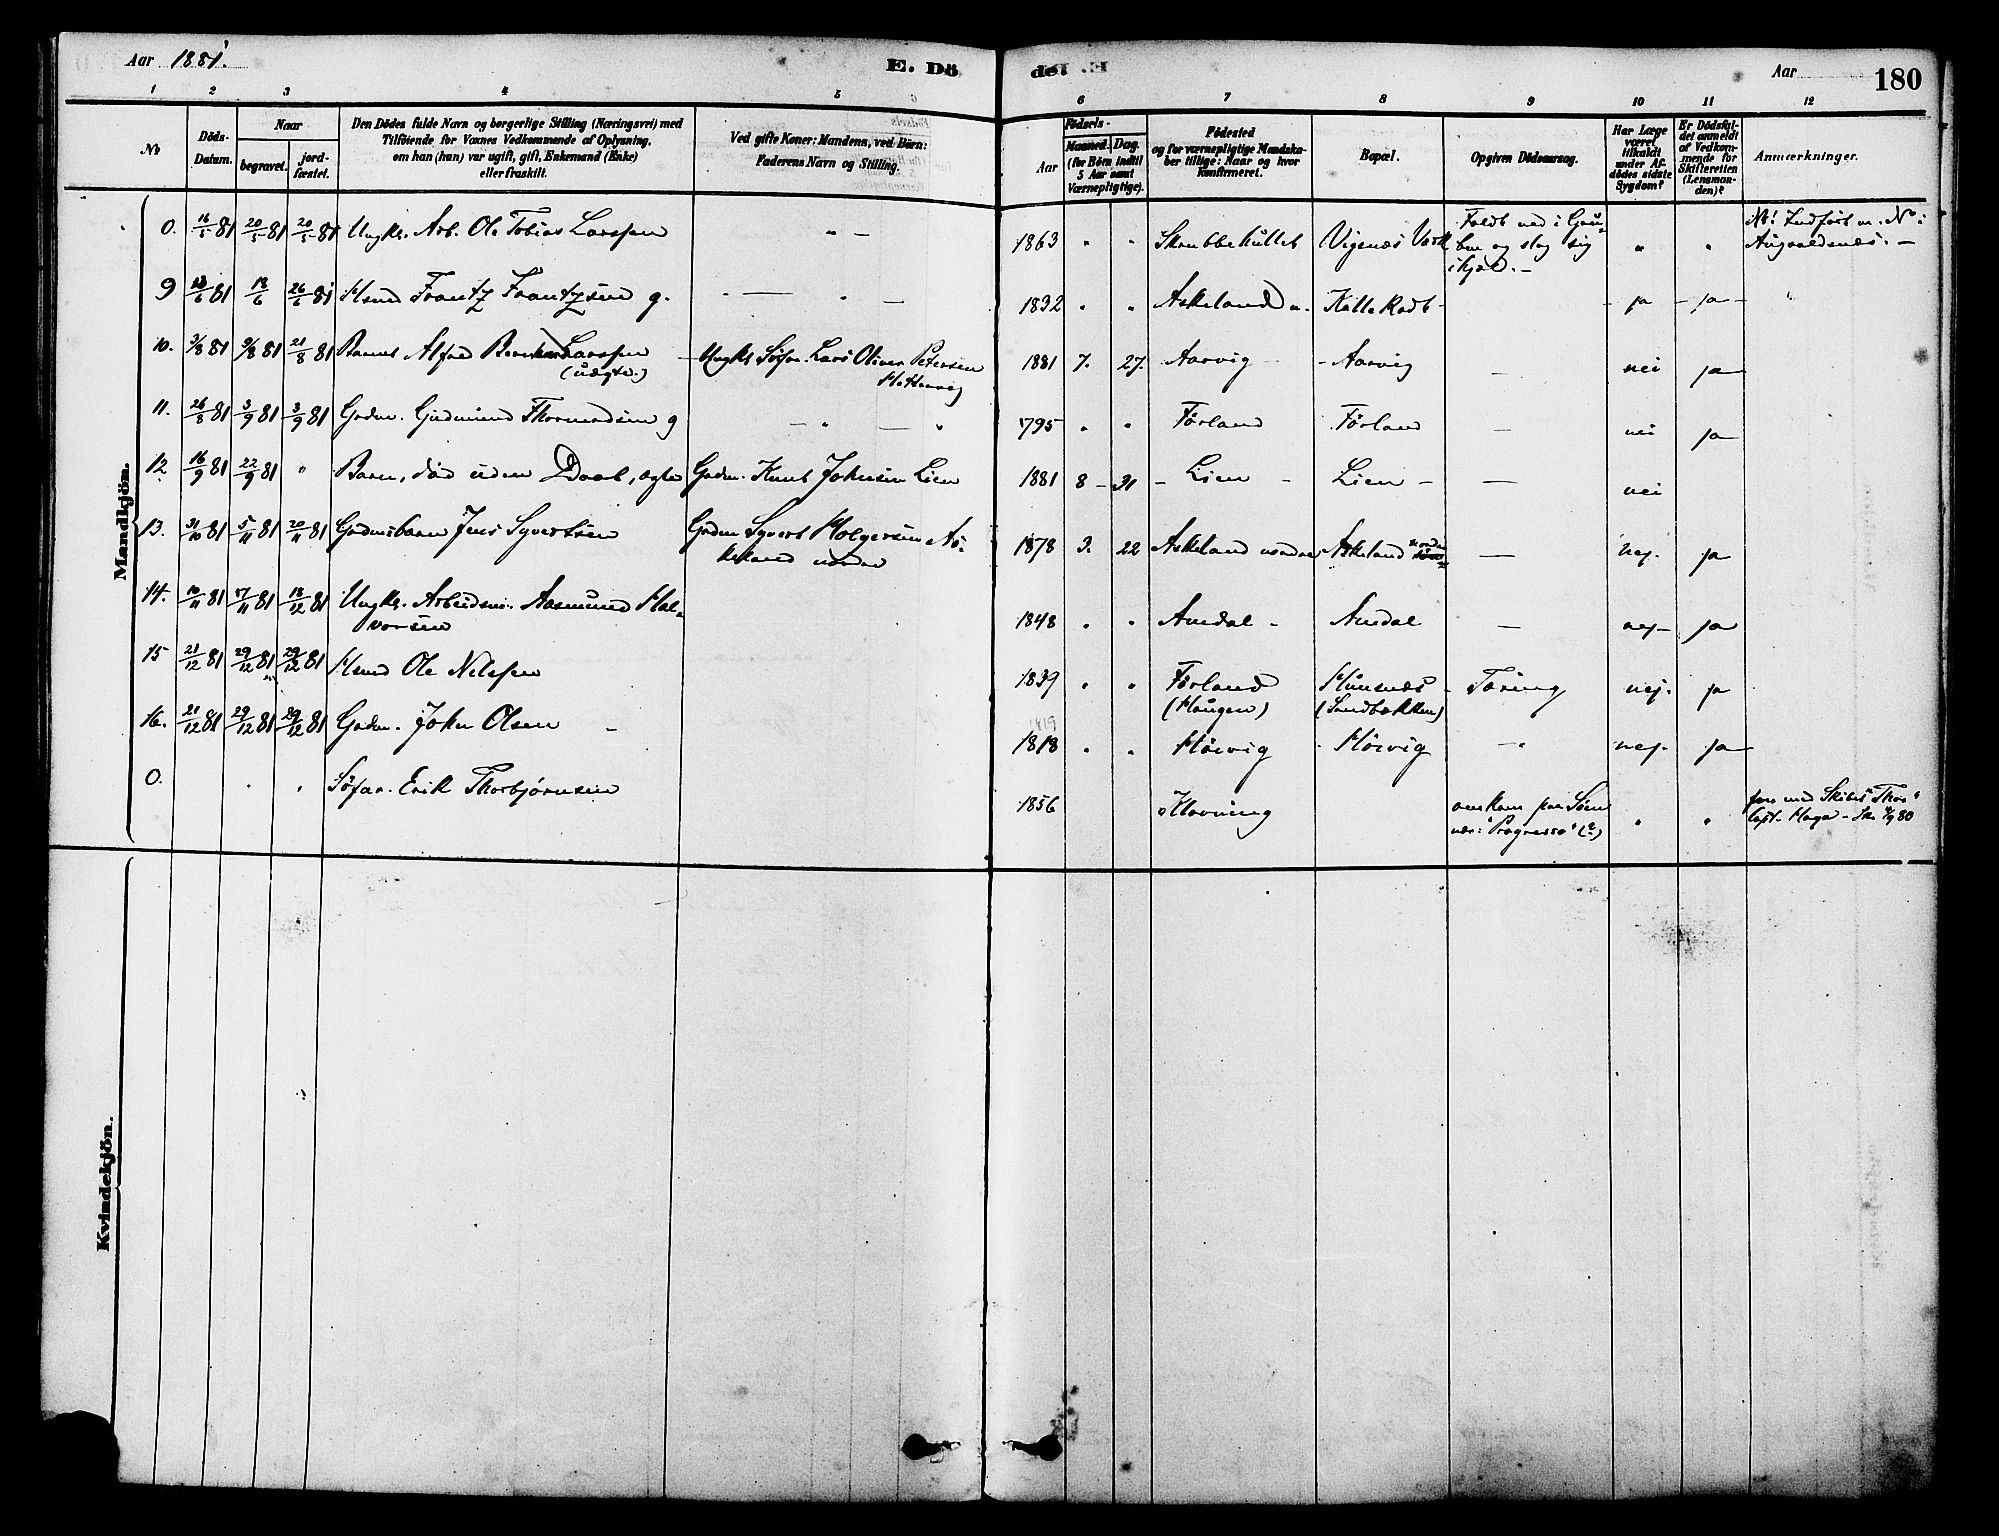 Aar 1881.
E. Dö
de. E.
Aar
180
1 2 3 4 5
6 7 8 9 10 11 12
No
Döds-
Datum.
Naar
begravet.
jord-
fæstet.
Den Dödes fulde Navn og borgerlige Stilling (Næringsvei) med
Tilföiende for Voxnes Vedkommende af Oplysning,
om han (hun) var ugift, gift, Enkemand (Enke)
eller fraskilt.
Ved gifte Koner: Mandens, ved Börn:
Faderens Navn og Stilling.
Födsels-
Aar
Maaned. Dag.
(for Börn indtil
5 Aar samt
Værnepligtige).
Födested
og for værnepligtige Mandska-
ber tillige: Naar og hvor
konfirmeret.
Bopæl.
Opgiven Dödsaarsag.
Har Læge
været
tilkaldt
under Af-
dödes sidste
Sygdom?
Er Dödsfal-
det anmeldt
af Vedkom-
mende for
Skifteretten
(Lensman-
den)?
Anmærkninger.
Mandkjön.
0. 16/5 81 20/5 81 20/5 81 Ungk. Arb. Ole Tobias Larssen " — 1863 " " Vigsnæs Værk Faldt ned i Gru- " "
ben og slog sig
ihjæl. —
Indført u. No i
Augvaldsnæs. —
9 13/6 81 18/6 26/6 81 Hsmd Frantz Frantzsen g. — " — 1832 " " Askeland n. ja ja
10. 3/8 81 9/8 81 21/8 81 Barnet Alfred Larssen Ungk. Søfar. Lars Oliver Petersen 1881 7. 27. Aarvig Aarvig — nei ja
(uægte.)
11. 26/8 81 3/9 81 3/9 81 Gdm. Gudmund Thormodsen g — " — " 1795 " " Førland Førland — nei ja
12. 16/9 81 22/9 81 " Barn, død uden Daab, ægte Gdm. Knut Johnsen Lien 1881 8 31 Lien Lien — nei
13. 31/10 81 5/11 81 20/11 81 Gdmsbarn Jens Syvertsen Gdm Syvert Holgersen As- 1878 3. 22 Askeland nordre Askeland nordre — nej. ja
keland nordre
14. 10/11 81 17/11 81 18/12 81 Ungk. Arbeidsm. Aasmund Hal- 1848 " " Amdal Amdal — nej ja
vorsen
15 21/12 81 29/12 81 29/12 81 Hsmd Ole Nilssen 1839 " " Førland Hunsnæs Tæring nej. ja
(Haugen) (Sandbækken)
16. 21/12 81 29/12 81 29/12 81 Gdm. John Olsen 1819
1818 " " Høievig Høievig — nej. ja
0. " " Søfar. Erik Thorbjørnsen 1856 Klovning omkom paa Søen " "
"Progresso" (?)
for med Skibet "Thor"
Capt. Haga
Kvindekjön.